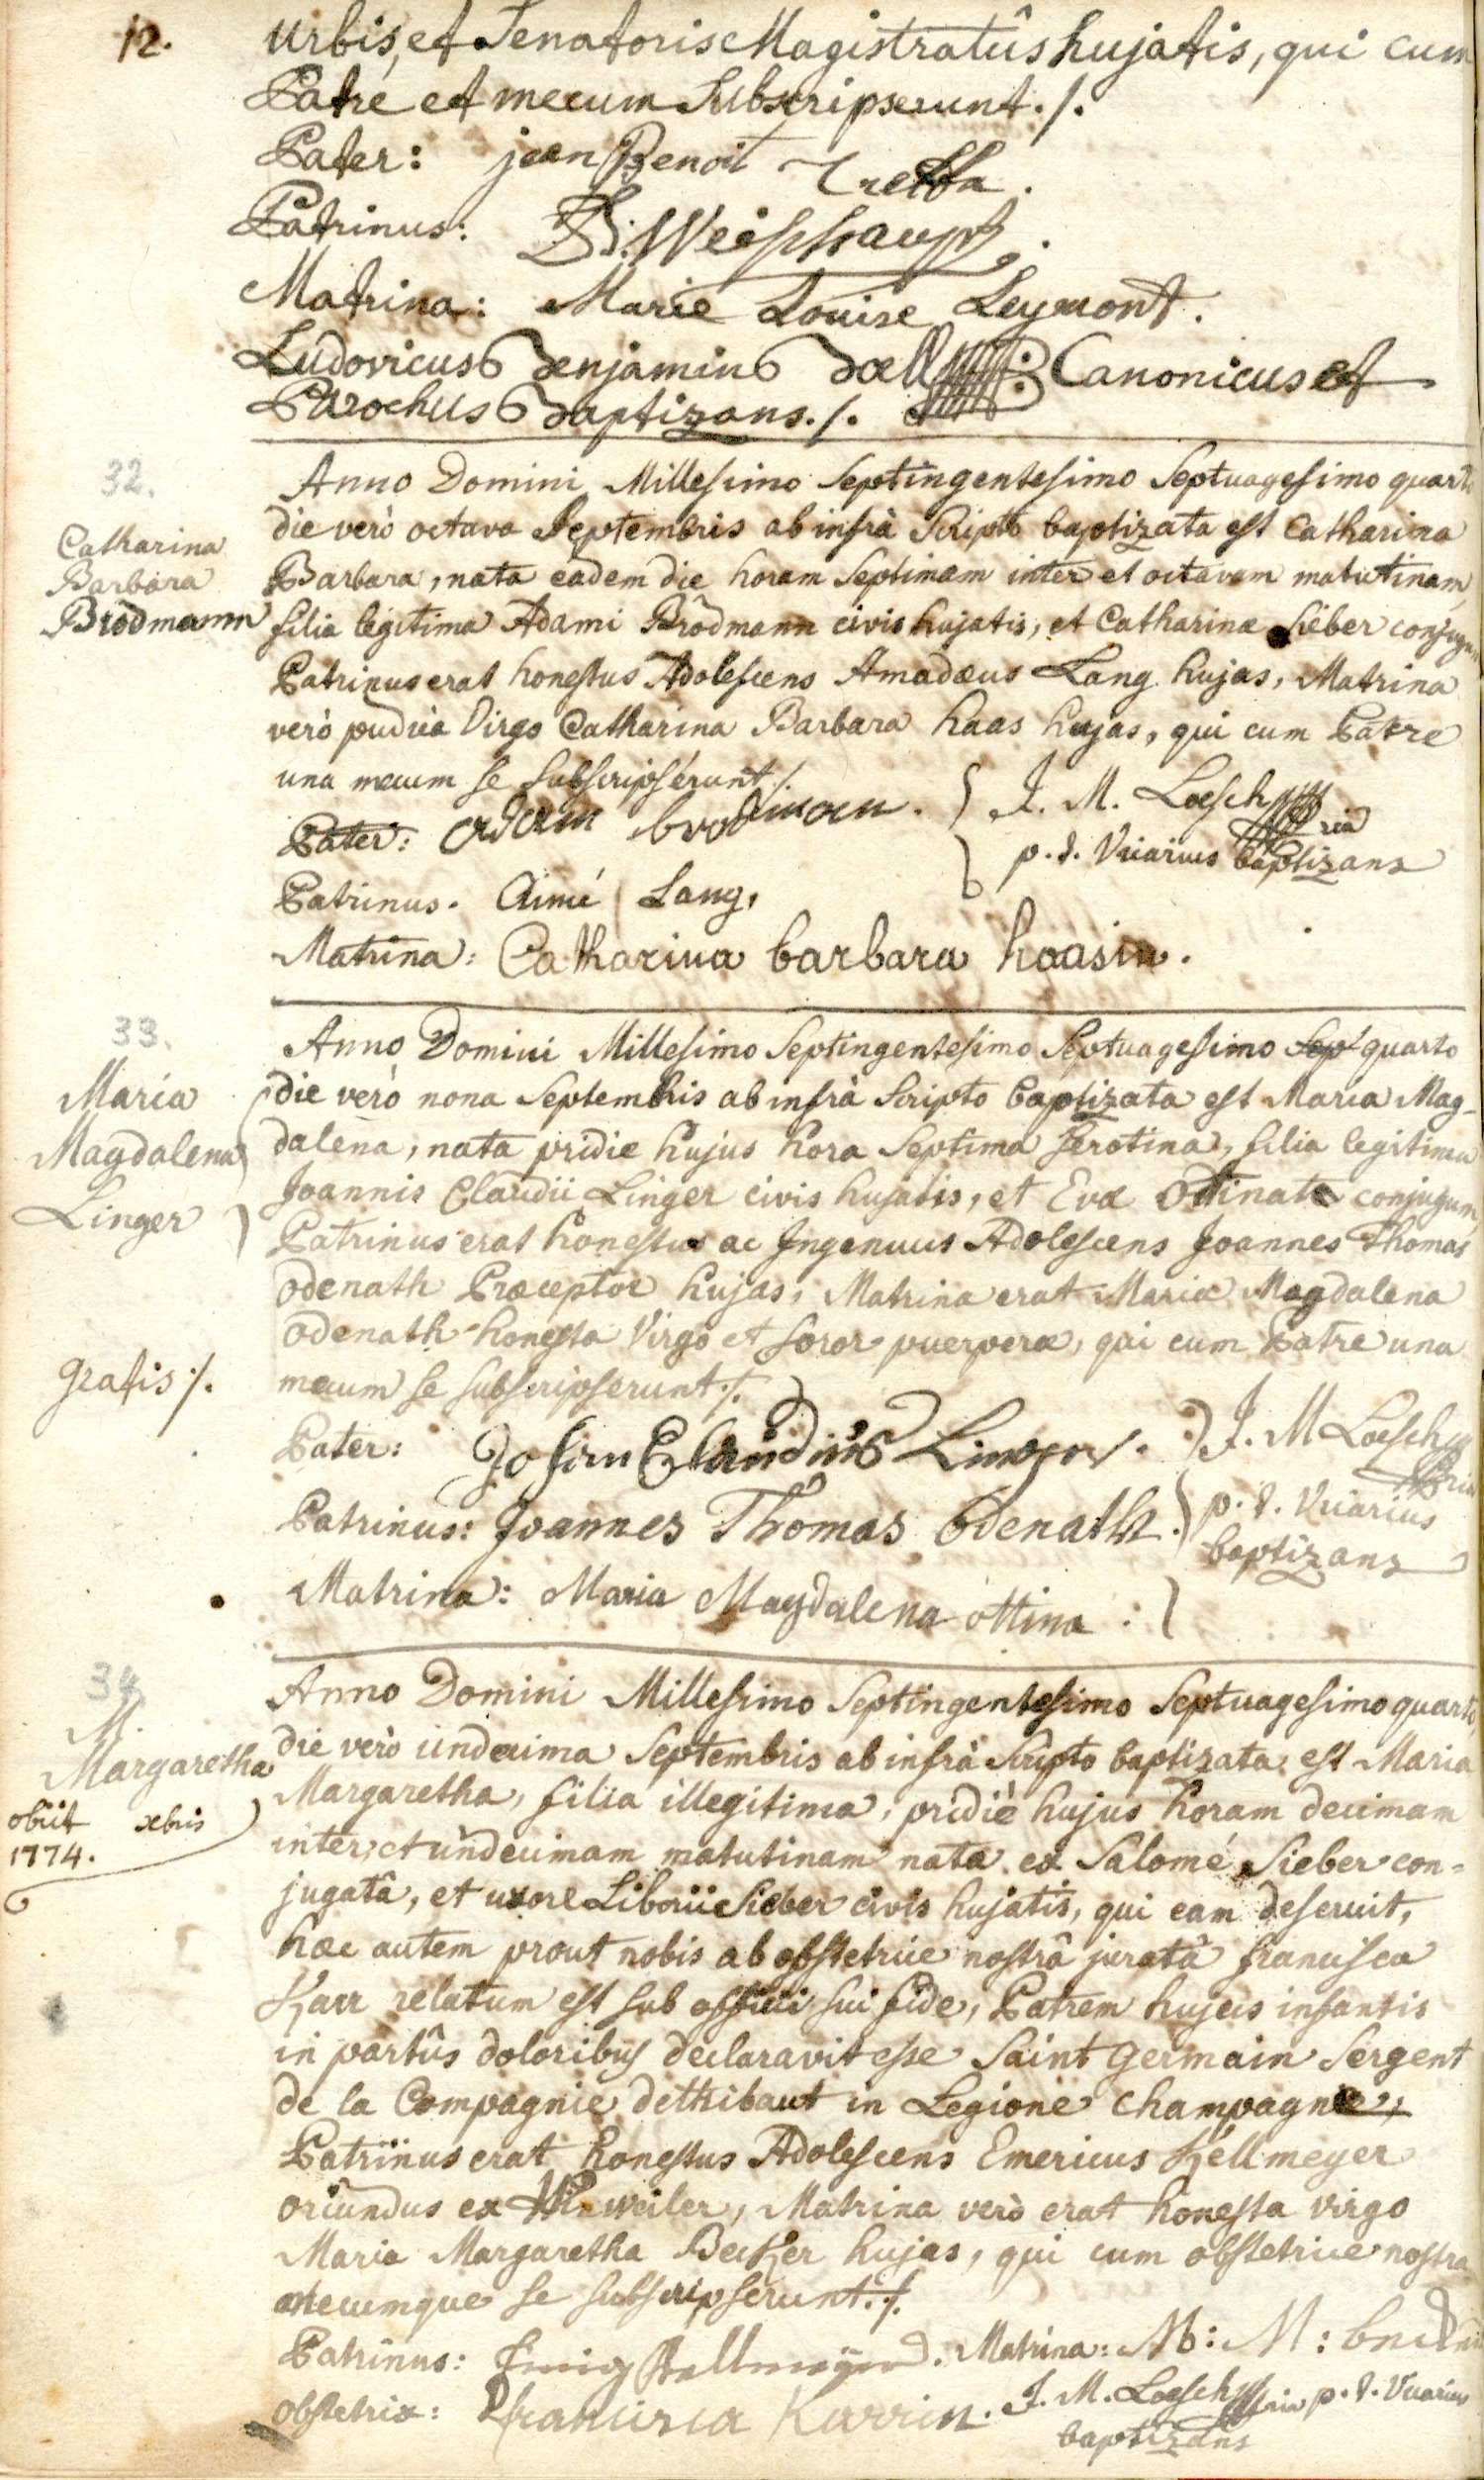 12.
Urbis, et Senatoris Magistratûs hujatis, qui cum
Patre et mecum Subscripserunt ./.
Pater: jean Benoit
Patrinus: Weishaupt.
Matrina: Marie Louise Leymont.
Ludovicus Benjamin Doell Canonicus et
Parochus Baptizans ./.
32.
Catharina
Barbara
Brödmann
Anno Domini Millesimo Septingentesimo Septuagesimo quarto
die verò octava Septembris ab infrà Scripto baptizata est Catharina
Barbara, nata eadem die horam Septimam inter et octavam matutinam,
filia legitima Adami Brödmann civis hujatis, et Catharinæ Sieber conjugum
Patrinus erat honestus Adolescens Amadæus Lang hujas, Matrina
verò pudica Virgo Catharina Barbara Haas hujas, qui cum Patre
una mecum se subscripserunt ./.
Pater: adam brodmann.
J. M. Loesch
p. t. Vicarius baptizans
Patrinus. Aimé Lang,
Matrina: Catharina barbara haasin.
33.
Maria
Magdalena
Linger
gratis ./.
Anno Domini Millesimo Septingentesimo Septuagesimo Sept quarto
die verò nona Septembris ab infrà Scripto baptizata est Maria Mag-
dalena, nata pridie hujus hora Septima Serotina, filia legitima
Joannis Claudii Linger civis hujatis, et Evæ Ottinat conjugum
Patrinus erat honestus ac Ingenuus Adolescens Joannes Thomas
Odenath Præceptor hujas, Matrina erat Maria Magdalena
Odenath honesta Virgo et Soror puerperæ, qui cum Patre una
mecum se subscripserunt ./.
Pater: Johan Claudius Linger.
J. M Loesch
p. t. Vicarius
baptizans
Patrinus: Joannes Thomas Odenath.
Matrina: Maria Magdalena ottina.
34.
M.
Margaretha
obiit xbris
1774.
Anno Domini Millesimo Septingentesimo Septuagesimo quarto
die verò undecima Septembris ab infrà Scripto baptizata est Maria
Margaretha, filia illegitima, pridiè hujus horam decimam
inter et undecimam matutinam nata ex Salomé Sieber con=
jugatâ, et uxore Liborii Sieber civis hujatis, qui eam deseruit,
hæc autem prout nobis ab obstetrice nostrâ juratâ francisca
Karr relatum est sub officii sui fide, Patrem hujus infantis
in partûs doloribus declaravit esse Saint Germain Sergent
de la Compagnie dethibaut in Legione Champagne,
Patrinus erat honestus Adolescens Emericus Kellmeyer
oriundus ex weiler, Matrina verò erat honesta virgo
Maria Margaretha Becker hujas, qui cum obstetrice nostra
mecumque se subscripserunt ./.
Patrinus: Matrina: M: M:
Obstetrix: francisca Karrin. J. M. Loesch p. t. Vicarius
baptizans